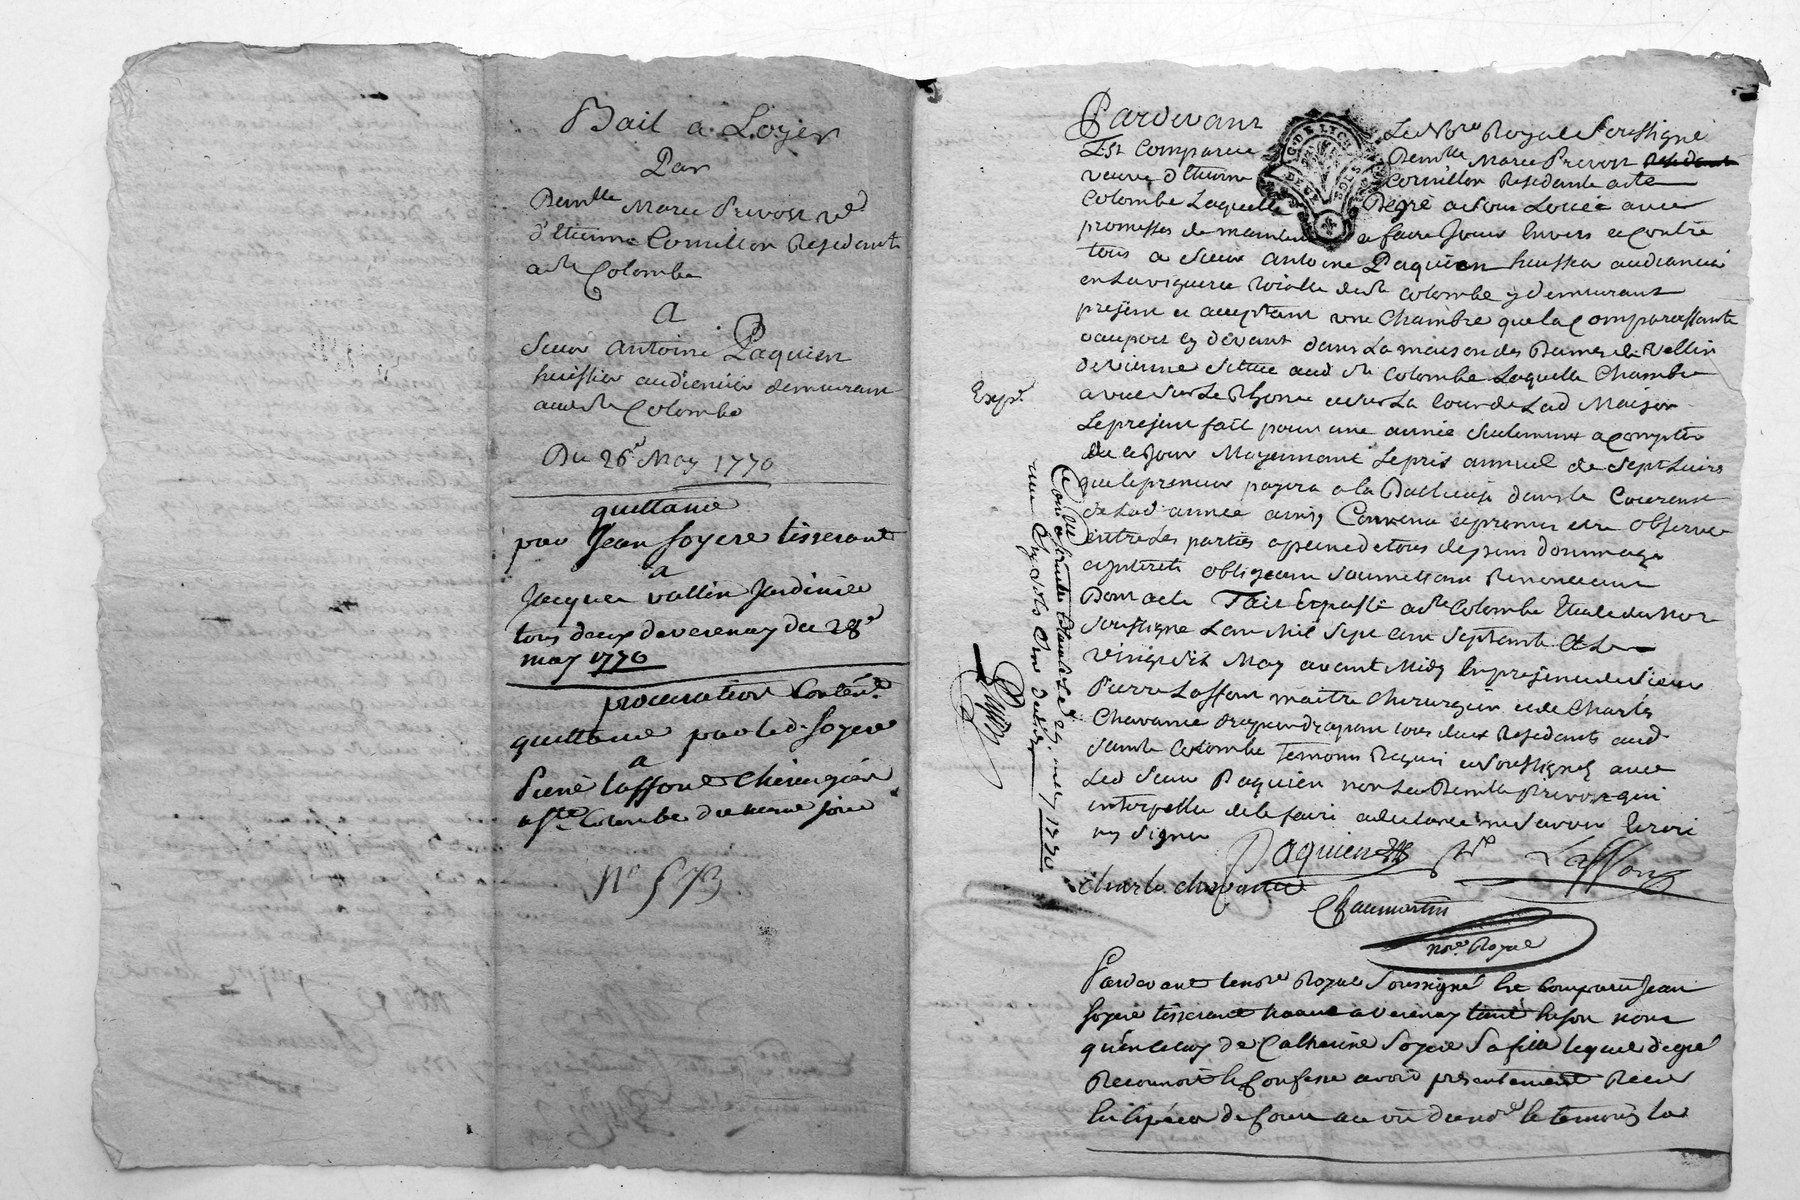 Bail a Loyer
Par
Demlle Marie Prevost ve
d'Etienne Cornillon Residante
a Ste Colombe
A
Sieur Antoine Paquien
huissier audiencier demeurant
aud Ste Colombe
Du 26e May 1770
quittance
par Jean Soyere tisserant
a
Jacques vallin Jardinier
tous deux de verenay du 28e
may 1770
procuration Conten.
quittance par led. Soyere
a
Pierre laffont Chirurgien
a Ste Colombe du meme jour
No 573
Pardevant Le Nore Royal Soussigné
Est Comparue Demlle Marie Prevost
veuve d'Etienne Cornillon Residante a Ste
Colombe Laquelle De gré a Sous Loüé avec
promesses de maintenir et faire Jouir Envers et Contre
tous a Sieur Antoine Paquien huissier audiancier
en La viguerie Roialle de Ste Colombe y demeurant
present et acceptant une Chambre que la Comparoissante
occupoit cy devant dans La maison des Dames de Vellin
de vienne Situee aud Ste Colombe Laquelle Chambre
a vue Sur Le Rhone et Sur La Cour de Lad Maison
Le present fait pour une année Seulement a Compter
de ce Jour Moyennant Le prix annuel de Sept Livres
que le preneur payera a la Bailleuse dans le Courant
de Lad année ainsy Convenu et promis etre observé
entre Les parties a peine de tous depens dommages
et interets obligeant Soumettant Renonceant
Dont acte Fait Et passé a Ste Colombe Etude du Nore
Soussigné L'an Mil Sept cent Septante Et Le
vingt Six May avant Midy En presence de Sieur
Pierre Laffont maitre Chirurgien et de Charles
Chavanie tous deux Residants aud
Sainte Colombe Temoins Requis et Soussignés avec
Led Sieur Paquien non La Demlle Prevost qui
interpellée de le faire a declaré ne Savoir Ecrire
ny Signer
Paquien Laffont
Charle chavanie
Chaumartin
Nore Royal
Exp.
Conté a Ste Colombe Le 29 may 1770
Pardevant le nore Royal Soussigné Est Comparu Jean
Soyere tisserant a verenay tant En Son nom
qu'en celuy de Catherine Soyere Sa fille lequel de gré
Reconnoit et Confesse avoir presentement Receu
En Especes de Cours au vu du nore et temoins la